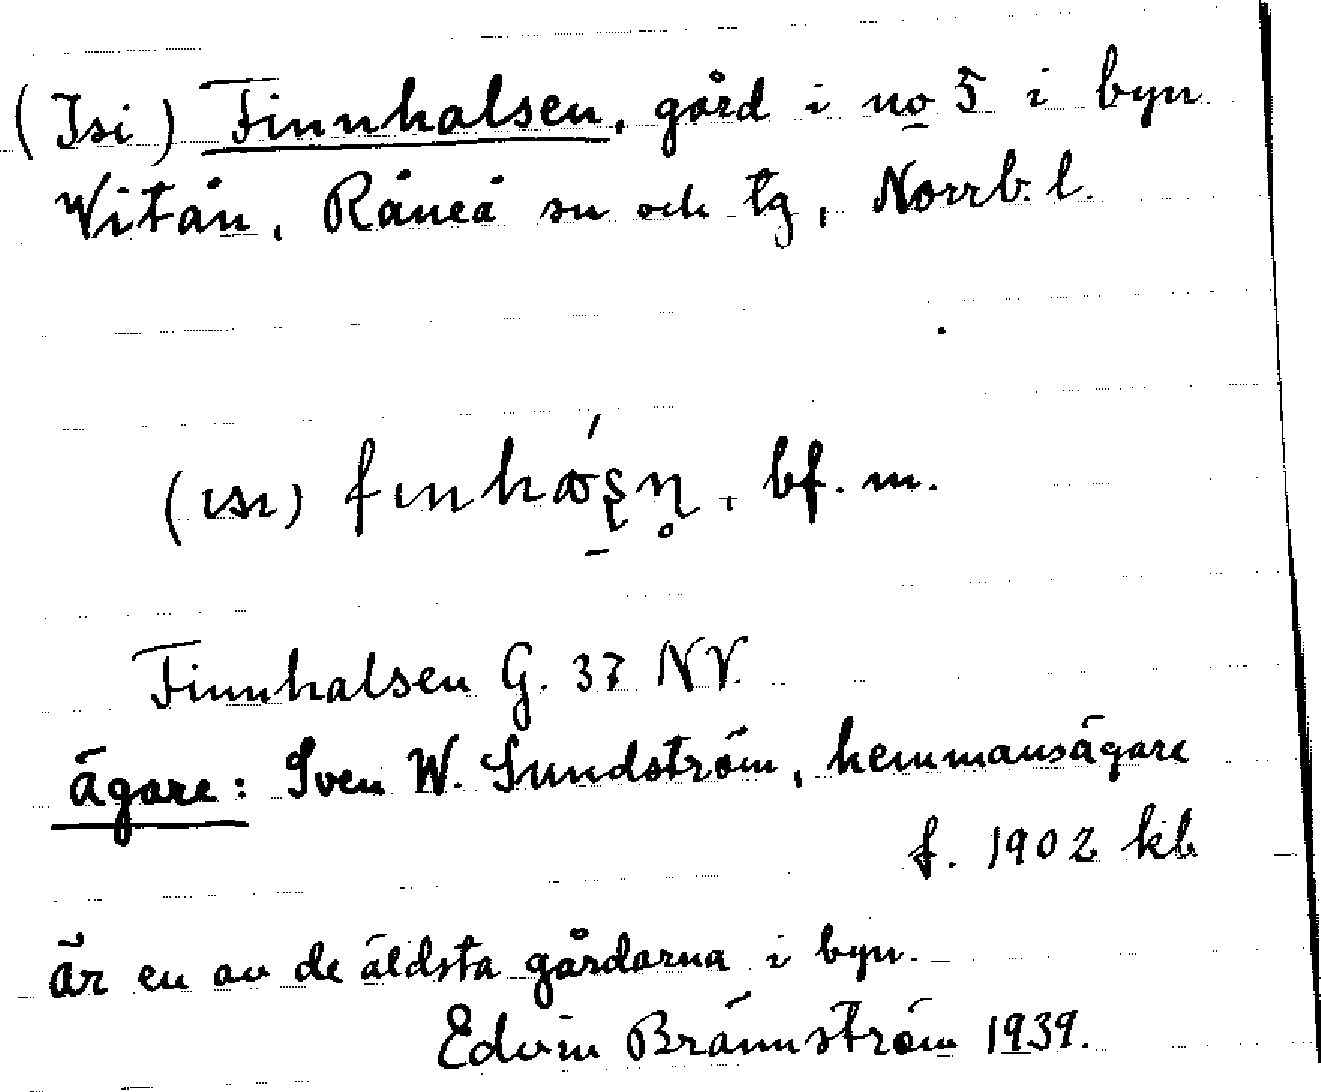 (Isi) Finnhalsen, gård i no 5 i byn
Witån, Råneå sn och tg, Norrb. l.
bf. m.
Finnhalsen G. 37 NV.
ägare: Sven W. Sundström, hemmansägare
f. 1902 kb
är en av de äldsta gårdarna i byn.
Edvin Brännström 1939.